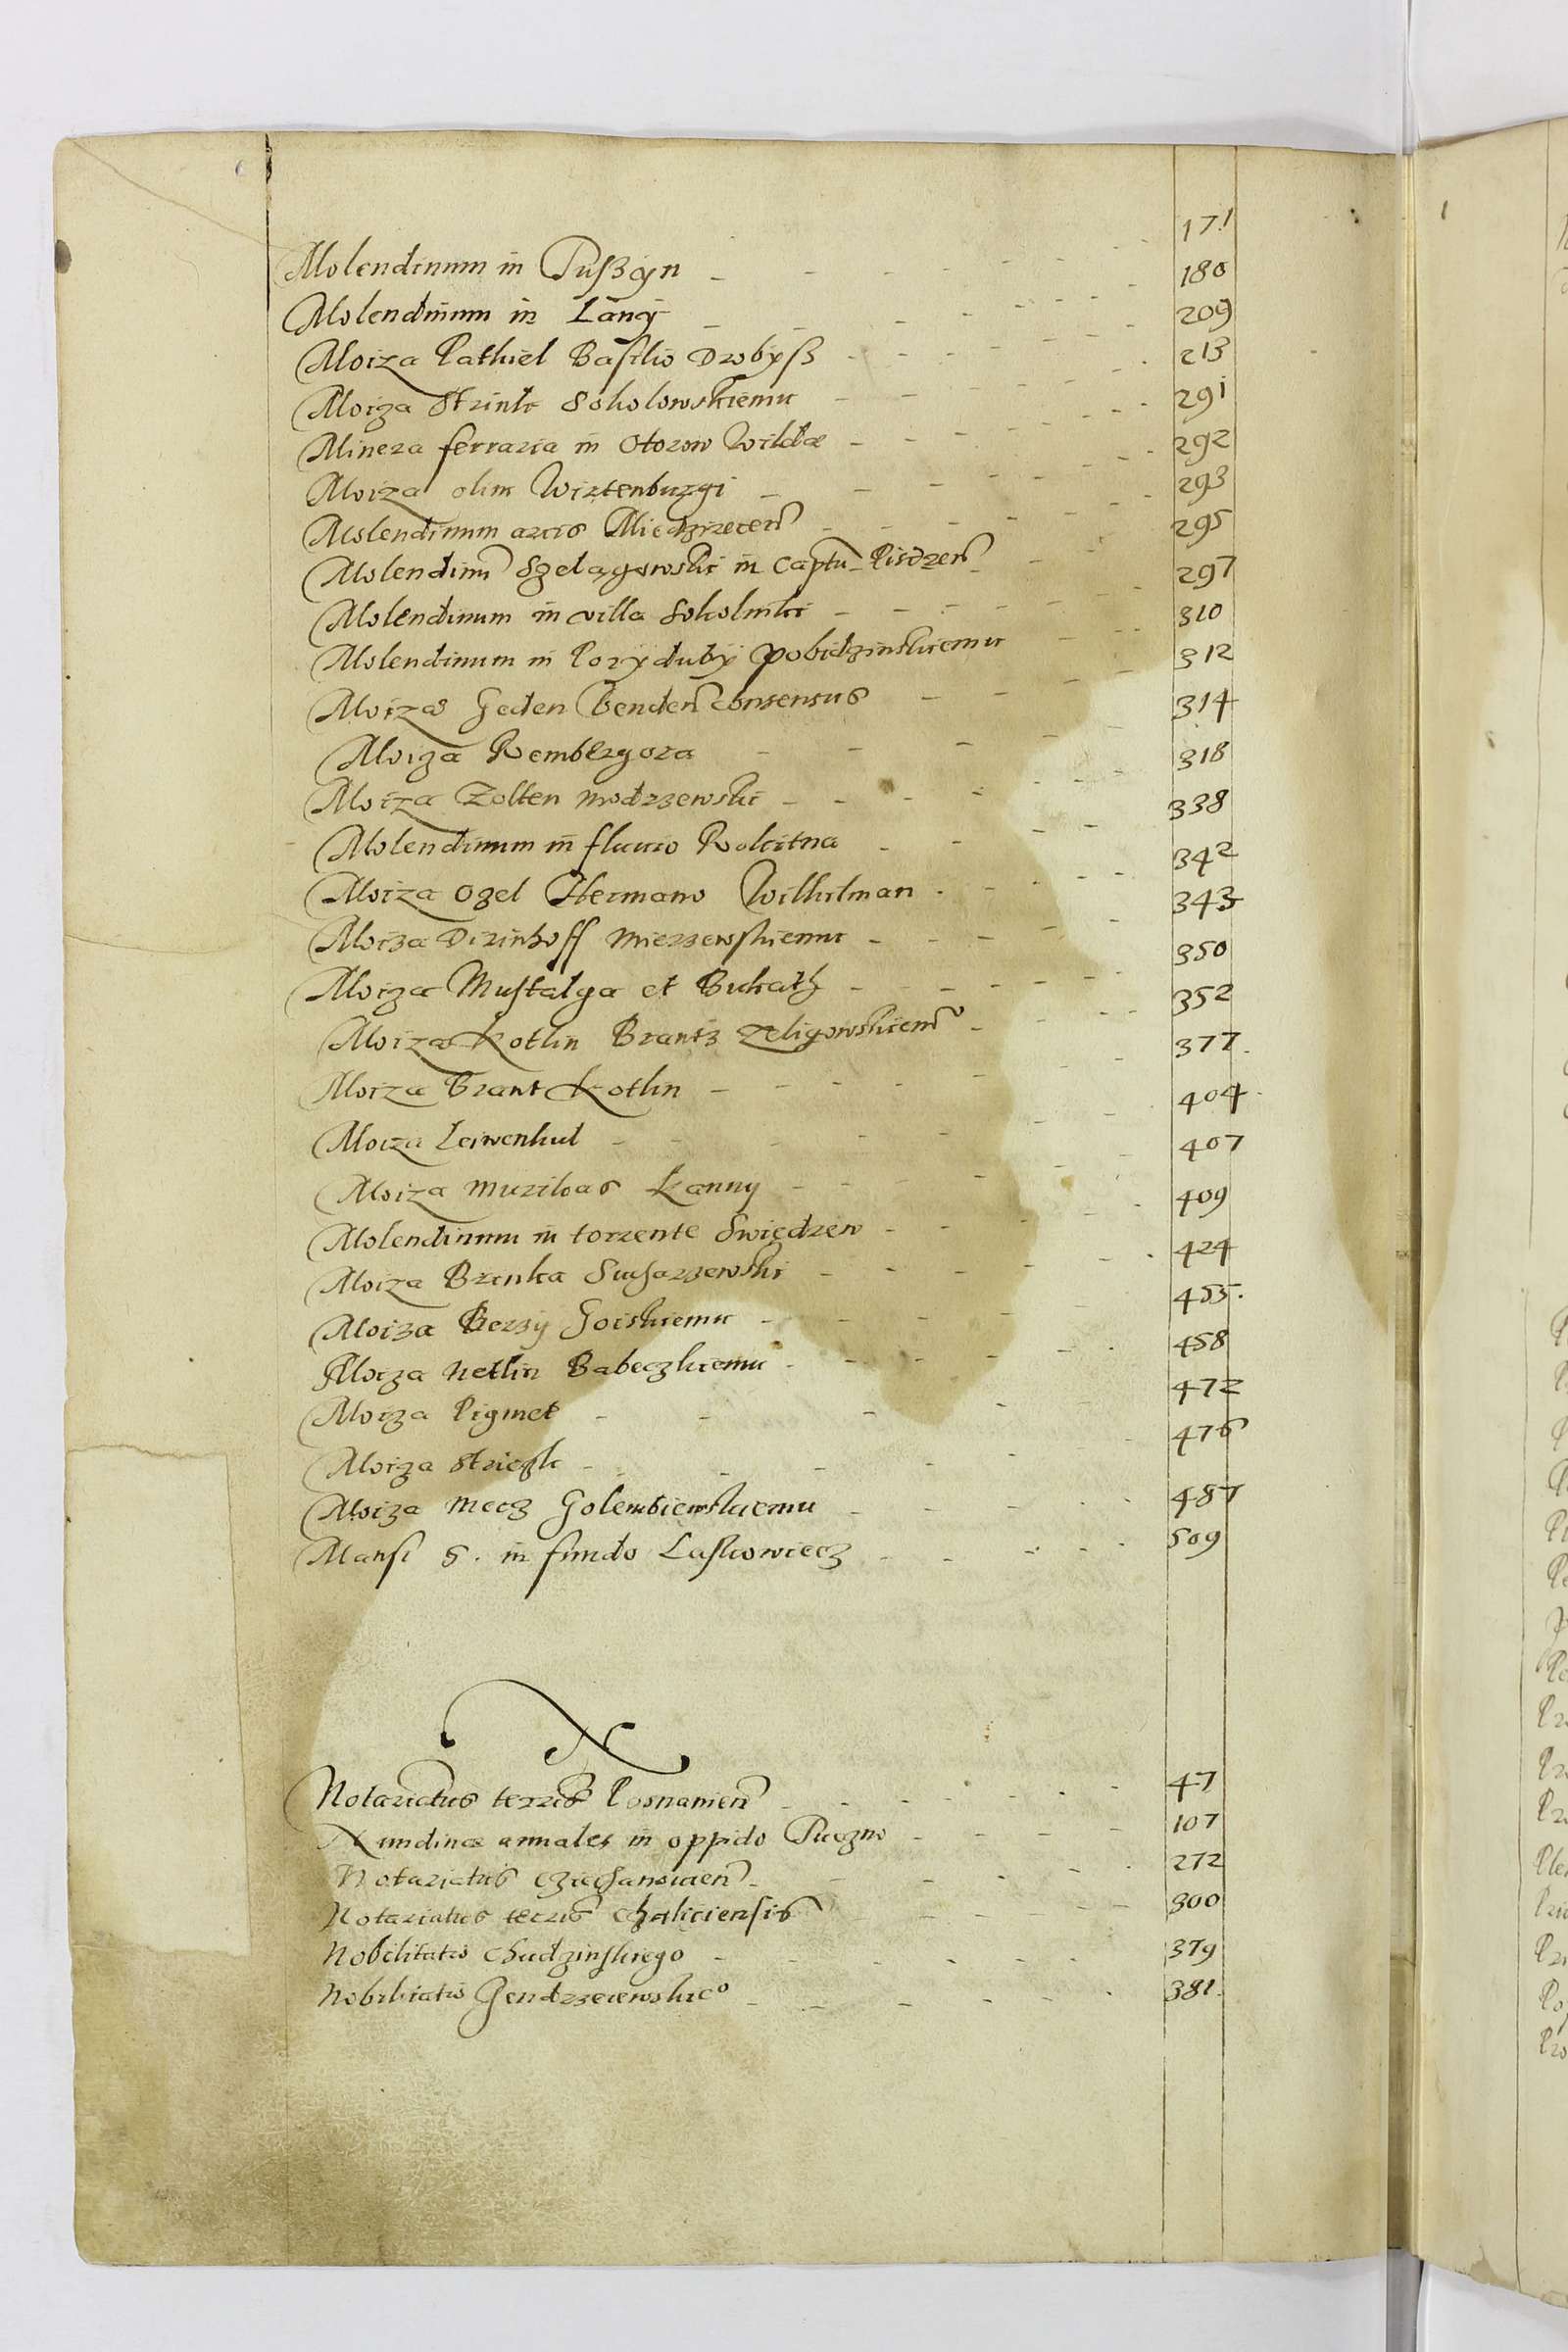 Molendinum in Pußczyn - - - 171
Molendinum in Lany - - - 180
Moiza Pathiel Basilio Drobyß - - - 209
Moiza Strink Sokolowskiemu - - - 213
Minera ferraria in Otorow Wildæ - - - 291
Moiza olim Wirtenburgi - - - 292
Molendinum arcis Miedzirecen - - - 293
Molendinu Szelagowski in Captu Pisdzen - - - 295
Molendinum in villa Sokolniki - - - 297
Molendinum in Pozyduby Pobidzinskiemu - - - 310
Moiza Geden Venden consensus - - - 312
Moiza Rembergora - - - 314
Moiza Zolten Modrzewski - - - 318
Molendinum in fluuio Rokitna - - - 338
Moiza Ozel Hermano Wilhilman - - - 342
Moiza Dirinhoff Mierzewskiemu - - - 343
Moiza Mustalga et Bukath - - - 350
Moiza Kotlin Brantz Zeligowskiem - - - 352
Moiza Brant Kotlin - - - 377
Moiza Leiwenkul - - - 404
Moiza Murikas Kanny - - - 407
Molendinum in torrente Swiędrew - - - 409
Moiza Brinka Sucharzewski - - - 424
Moiza Berzy Goiskiemu - - - 455
Moiza Netkin Babeczkiemu - - - 458
Moiza Pigmet - - - 472
Moiza Striezk - - - 476
Moiza Mecz Golembiewskiemu - - - 487
Mansi 5. in fundo Laskowiecz - - - 509
N
Notariatus terris Posnanien - - - 47
Nundinæ annales in oppido Puczno - - - 107
Notariatus Cziechanouien - - - 272
Notariatus terris Chaliciensis - - - 300
Nobilitatio Chudzinskiego - - - 379
Nobilitatio Gendrzeiewskio - - - 381